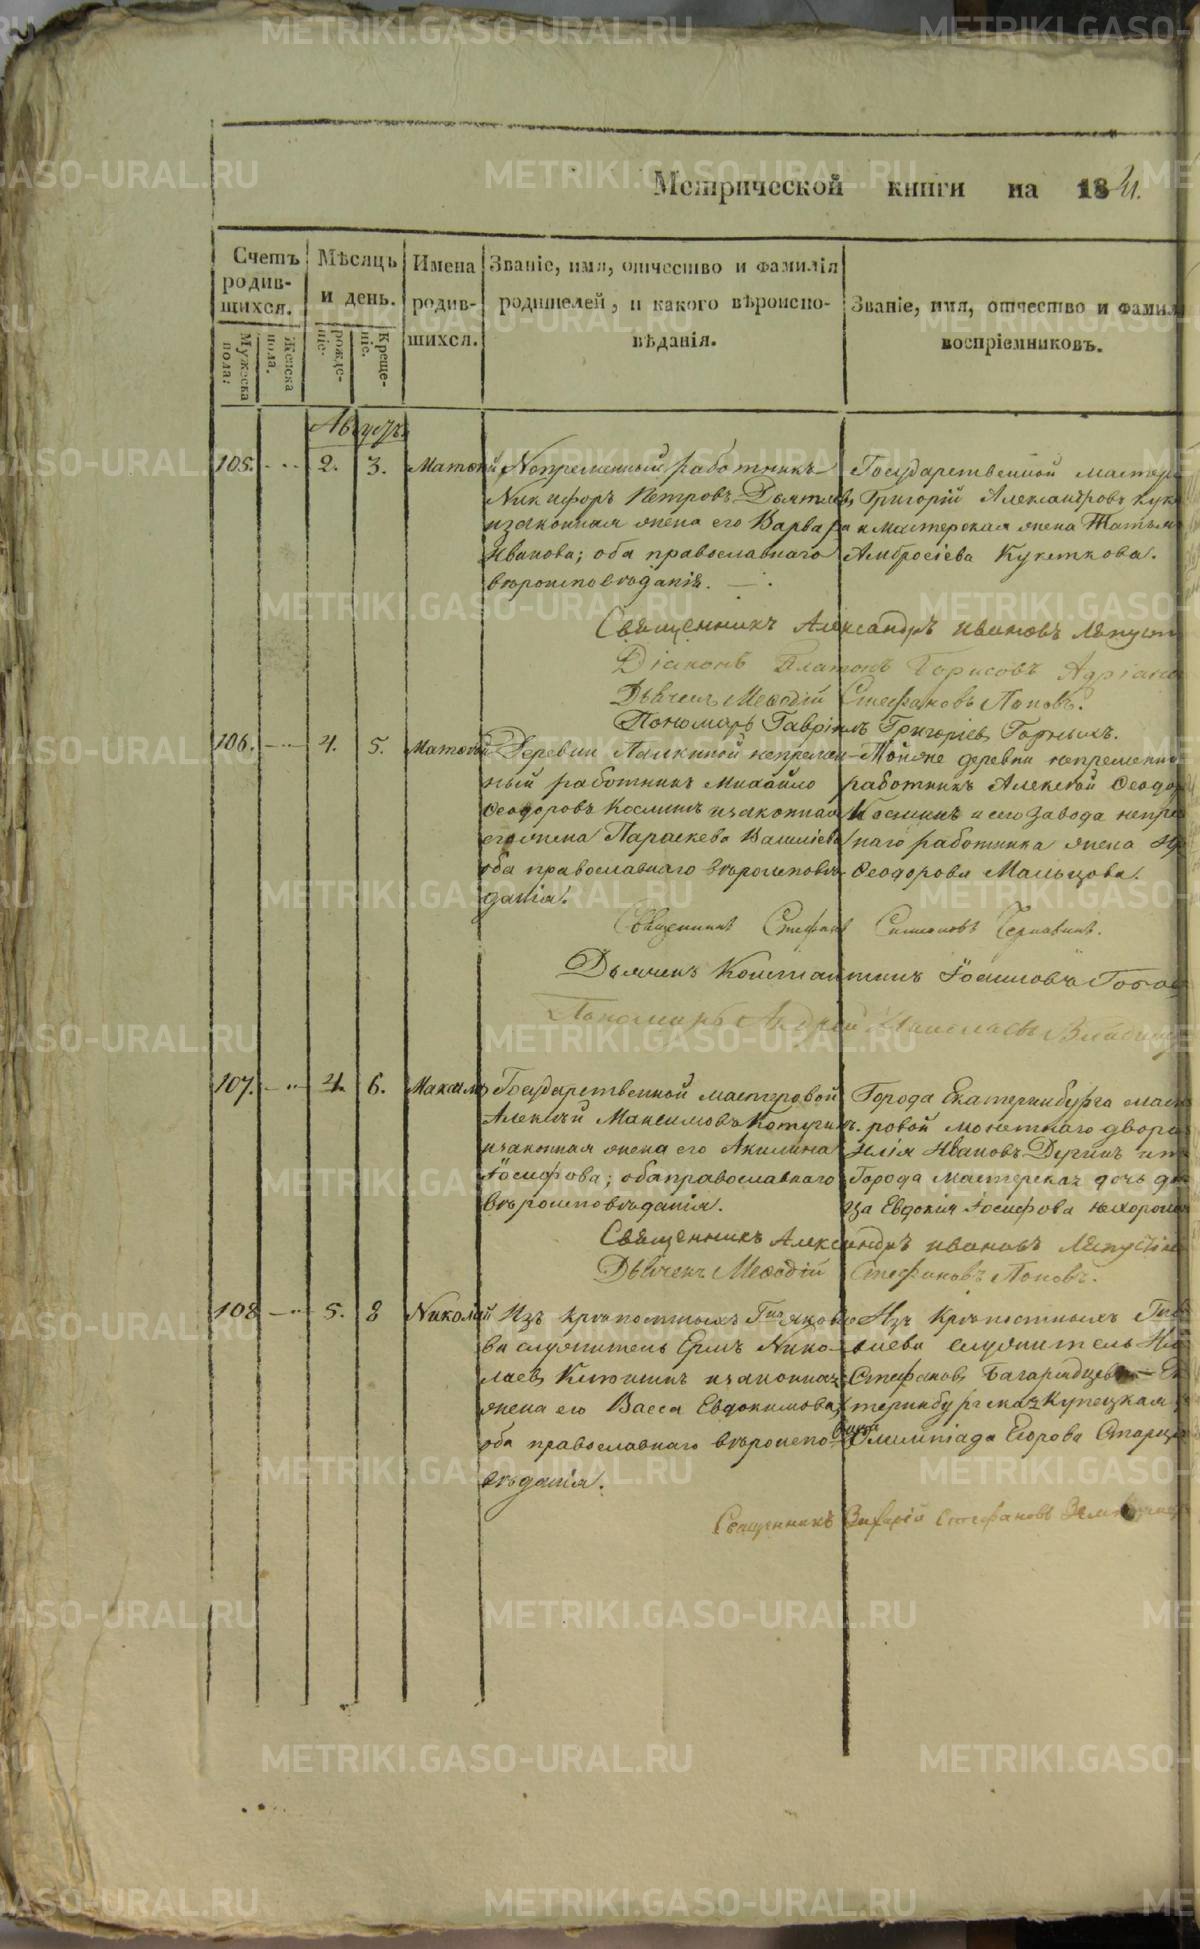 Метрической книги на 184
Счетъ родив-шихся.
Мѣсяцъ и день.
Имена родив-шихся.
Званіе, имя, отчество и фамилія родителей, и какого вѣроиспо-вѣданія.
Званіе, имя, отчество и фамил
воспріемниковъ.
Мужеска пола.
Женска пола.
рожде-ніе.
Креще-ніе.
Августъ
105. 2. 3. Матѳей
Непременный работникъ
Никифоръ Петровъ Дьятлев
и законная жена его Варвара
Иванова; оба православнаго
вѣроисповѣданія.
Государственной мастеро
Григорій Александровъ Кук
и мастерская жена Татья
Амбросіева Кукеткова.
Священникъ Александръ Ивановъ Лепуст
Діаконъ Платонъ Борисовъ Адріано
Дьячекъ Меѳодій Стефановъ Поповъ.
Пономарь Гавріилъ Григорьевъ Горныхъ.
106. 4. 5. Матѳей
Деревни Палкиной непремен-
ный работникъ Михайло
Ѳеодоровъ Космин и законная
его жена Параскева Василіева
оба православнаго вѣроисповѣ-
данія.
Той же деревни непременно
работникъ Алексѣй Ѳеодор
Косминъ и сего завода непре
наго работника жена
Ѳеодорова Мальцова.
Священникъ Стефанъ Симеоновъ Чернавинъ.
Дьячекъ Константинъ Іосифовъ
Пономарь Андрей Николаевъ Владими
107. 4. 6. Максимъ
Государственной мастеровой
Алексѣй Максимовъ Котугин
и законная жена его Акилина
Іосифова; оба православнаго
вѣроисповѣданія.
Города Екатеринбурга маст
ровой монетнаго двора
Илія Ивановъ Дугинъ и т
Города мастерская дочь дѣ
ца Евдокія Іосифова нехороши
Священникъ Александръ Ивановъ Лепусти
Дьячекъ Меѳодій Стефановъ Поповъ.
108 5. 8 Николай
Изъ крѣпостныхъ Гна Яковле
ва служитель Ермъ Нико-
лаевъ Китаинъ и законная
жена его Васса Евдокимова,
оба православнаго вѣроиспо-
вѣданія.
Изъ крѣпостныхъ Гна
влева служитель
Стефановъ Багарядцевъ – Ек
теринбургская купецкая
Олимпіада Егорова Старц
Священникъ Захарій Стефановъ
METRIKI.GASO-URAL.RU